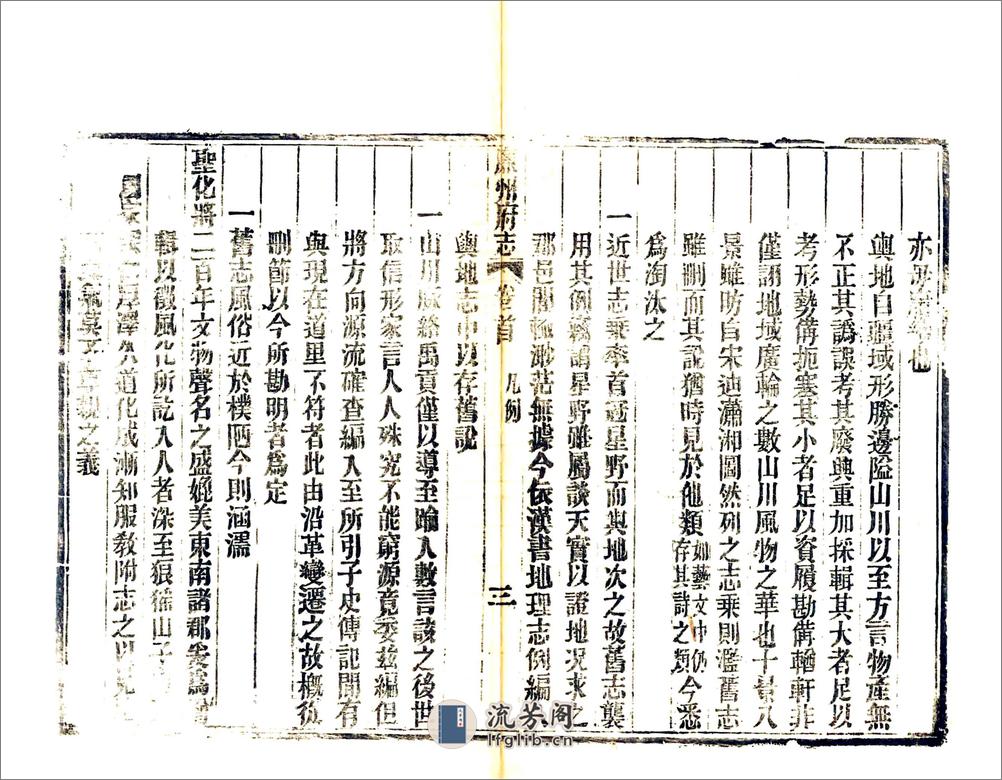 亦
輿地自疆域形勝邊隘山川以至方言物產無
不正其譌誤考其廢興重加採輯其大者足以
考形勢備扼塞其小者足以資履勘備輶軒非
僅詡地域廣輪之數山川風物之華也十景八
景雖昉自宋迪瀟湘圖然列之志乘則濫舊志
雖刪而其說猶時見於他類如藝文中仍存其詩之類今悉
爲淘汰之
一近世志乘率首冠星野而輿地次之故舊志襲
用其例竊謂星野雖屬談天實以證地況求之
郡邑間極渺茫無據今依漢書地理志例編
州府志 卷首 凡例 三
輿地志中以存舊說
一山川脈絡禹貢僅以導至踰入數言該之後世
取信形家言人人殊究不能窮源竟委茲編但
將方向源流確查編入至所引子史傳記間有
與現在道里不符者此由沿革變遷之故概從
刪節以今所勘明者爲定
一舊志風俗近於樸陋今則涵濡
聖化將二百年文物聲名之盛媲美東南諸郡爰爲
以徵風化所訖入人者深至狼猺山子
厚澤久道化成漸知服教附志之以見
之義
流芳阁
lfglib.cn